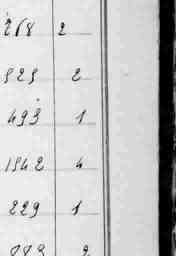 268 2
529 2
493 1
1542 4
229 1